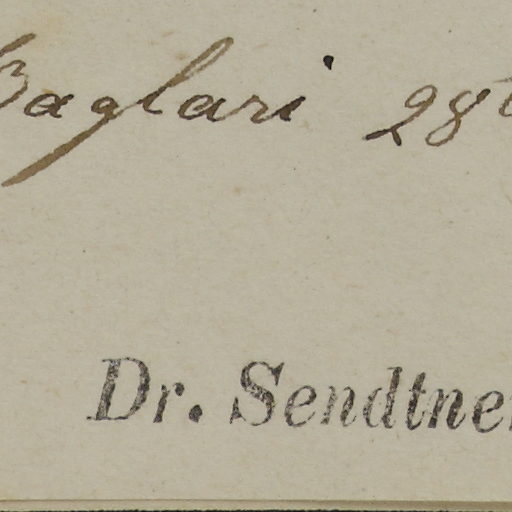 Baglari 28
Dr. Sendtner